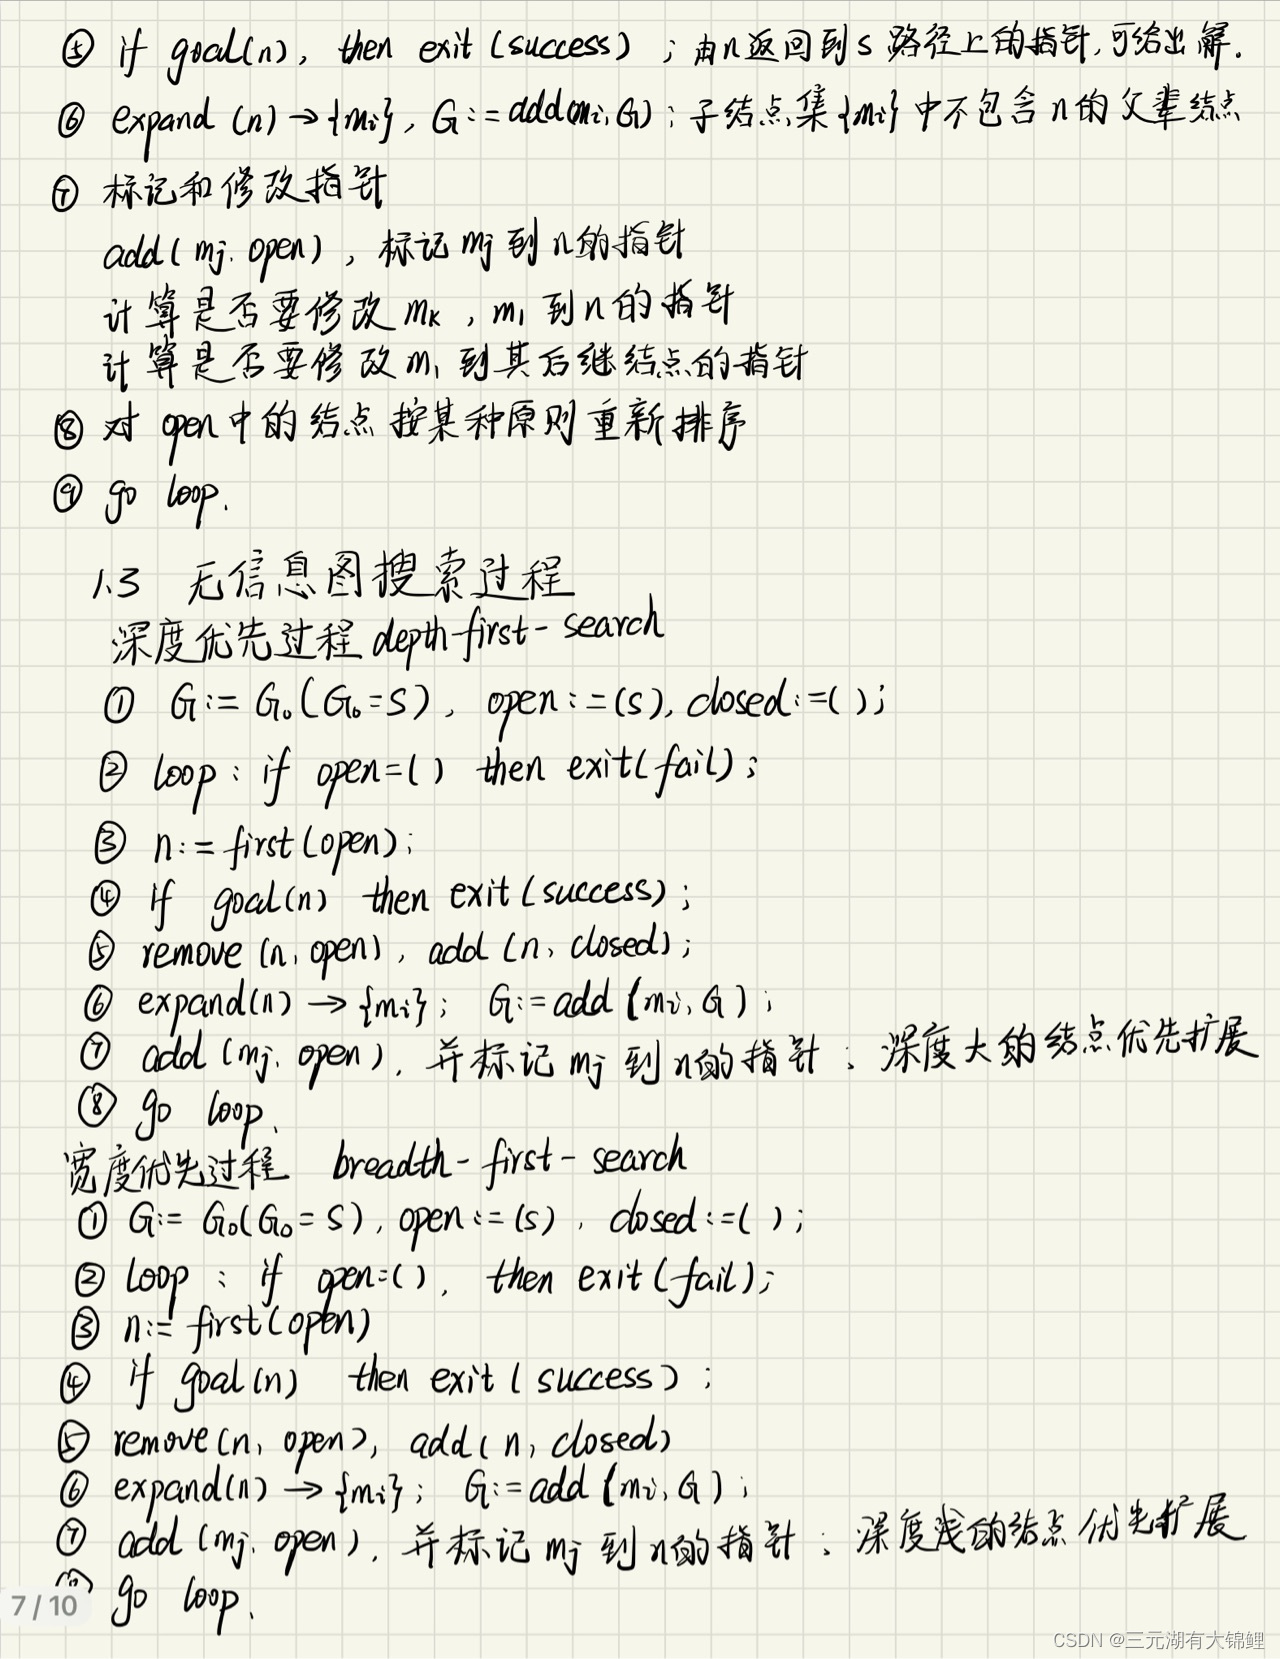 ⑤ if goal(n), then exit (success) ; 由n返回到s路径上的指针,可给出解.
⑥ expand (n)→{mi}, G:=add(mi,G) ; 子结点集{mi}中不包含n的父辈结点
⑦ 标记和修改指针
add(mj, open), 标记mj到n的指针
计算是否要修改mk, ml到n的指针
计算是否要修改ml到其后继结点的指针
⑧ 对open中的结点按某种原则重新排序
⑨ go loop.
1.3 无信息图搜索过程
深度优先过程 depth-first-search
① G:=G0(G0=S), open:=(s), closed:=( );
② loop: if open=( ) then exit(fail);
③ n:=first(open);
④ if goal(n) then exit(success);
⑤ remove (n, open), add (n, closed);
⑥ expand(n)→{mi}; G:=add(mi, G);
⑦ add (mj, open), 并标记mj到n的指针; 深度大的结点优先扩展
⑧ go loop.
宽度优先过程 breadth-first-search
① G:=G0(G0=S), open:=(s), closed:=( );
② loop: if open=( ), then exit(fail);
③ n:=first(open)
④ if goal(n) then exit(success);
⑤ remove(n, open), add(n, closed)
⑥ expand(n)→{mi}; G:=add(mi, G);
⑦ add (mj, open), 并标记mj到n的指针; 深度浅的结点优先扩展
go loop.
7 / 10
CSDN @三元湖有大锦鲤